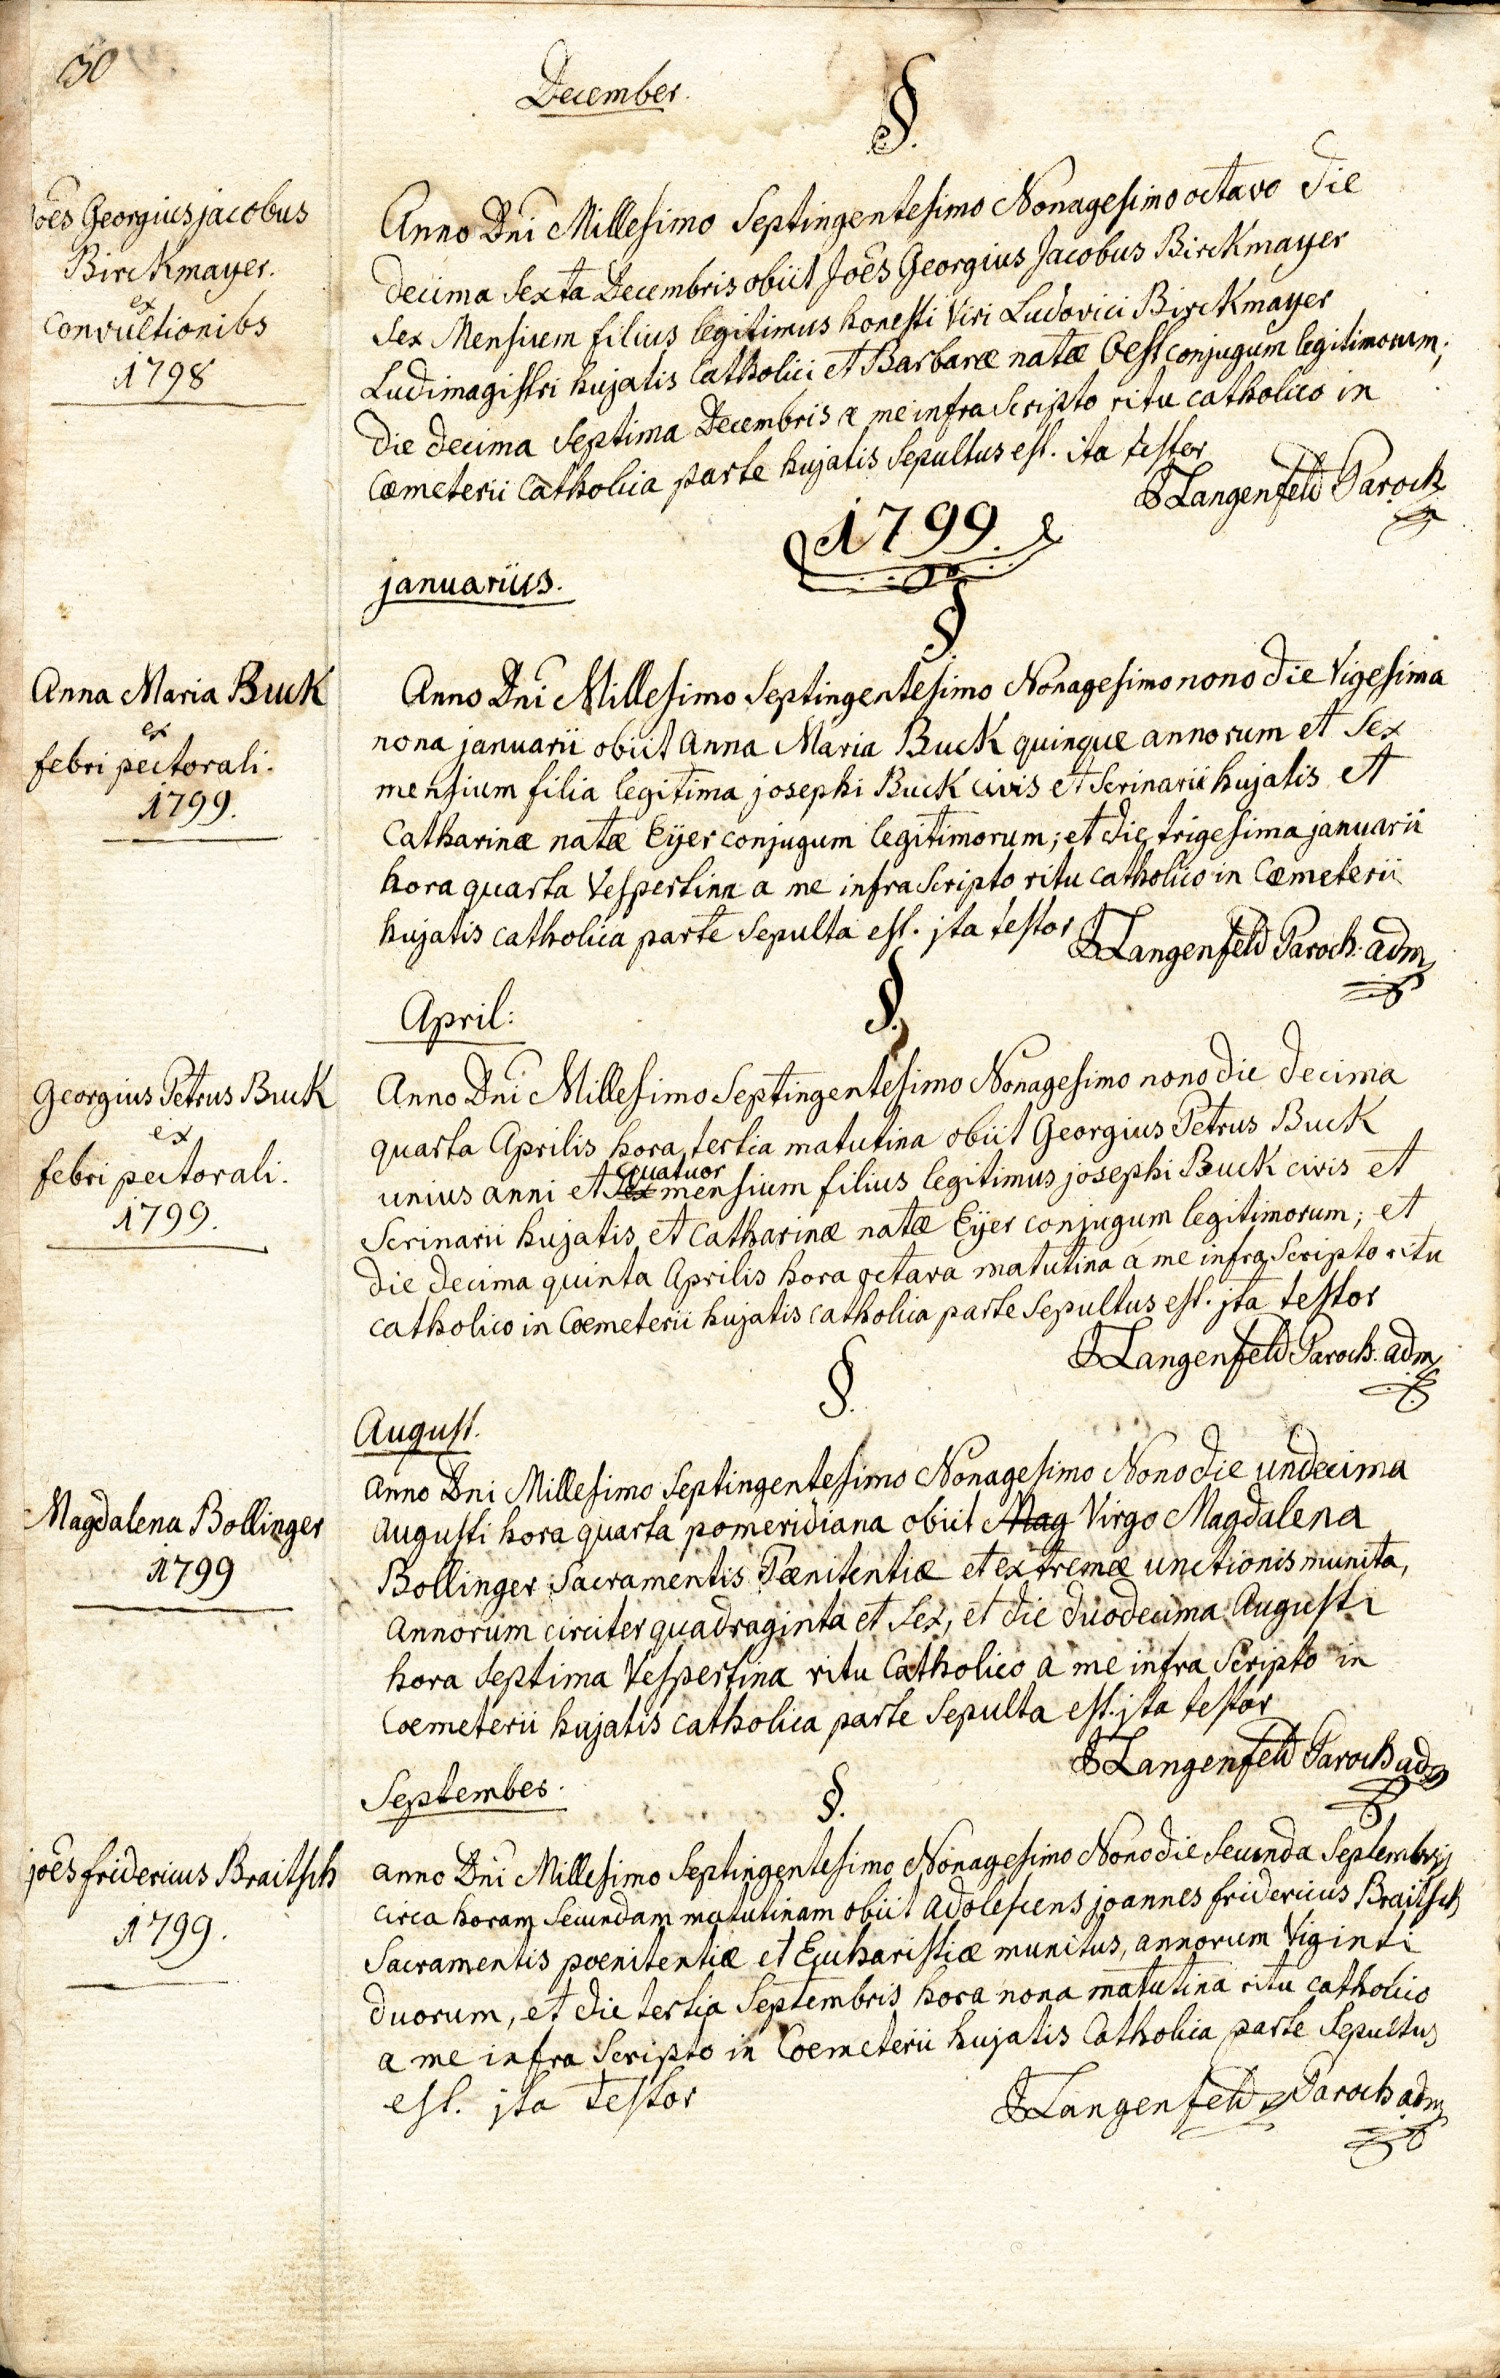 30
December.
§.
Joës Georgius jacobus
Birckmayer.
ex
convultionibs
1798
Anno Dni Millesimo Septingentesimo Nonagesimo octavo die
decima Sexta Decembris obiit Joës Georgius Jacobus Birckmayer
Sex Mensium filius legitimus honesti Viri Ludovici Birckmayer
Ludimagistri hujatis Catholici et Barbaræ natæ Oest conjugum legitimorum;
die decima Septima Decembris a me infra Scripto ritu catholico in
Cœmeterii Catholica parte hujatis Sepultus est. ita testor
Langenfeld Paroch
1799.
januarius.
§
Anna Maria Buck
ex
febri pectorali.
1799.
Anno Dni Millesimo Septingentesimo Nonagesimo nono die Vigesima
nona januarii obiit Anna Maria Buck quinque annorum et Sex
mensium filia legitima josephi Buck civis et Scrinarii hujatis et
Catharinæ natæ Eÿer conjugum legitimorum; et die trigesima januarii
hora quarta Vespertina a me infra Scripto ritu catholico in Cœmeterii
hujatis catholica parte Sepulta est. jta testor
Langenfeld Paroch. adm
April:
§.
Georgius Petrus Buck
ex
febri pectorali.
1799.
Anno Dni Millesimo Septingentesimo Nonagesimo nono die decima
quarta Aprilis hora tertia matutina obiit Georgius Petrus Buck
quatuor
unius anni et Sex mensium filius legitimus josephi Buck civis et
Scrinarii hujatis et Catharinæ natæ Eÿer conjugum legitimorum; et
die decima quinta Aprilis hora octava matutina a me infra Scripto ritu
catholico in Cœmeterii hujatis catholica parte Sepultus est. jta testor
Langenfeld Paroch. adm
§.
August.
Magdalena Bollinger
1799
Anno Dni Millesimo Septingentesimo Nonagesimo Nono die undecima
Augusti hora quarta pomeridiana obiit Mag Virgo Magdalena
Bollinger Sacramentis Pœnitentiæ et extremæ unctionis munita,
Annorum circiter quadraginta et Sex, et die duodecima Augusti
hora Septima Vespertina ritu Catholico a me infra Scripto in
Coemeterii hujatis catholica parte Sepulta est. jta testor
Langenfeld Paroch adm
September.
§.
joës fridericus Braitsch
1799.
anno Dni Millesimo Septingentesimo Nonagesimo Nono die Secunda Septembris
circa horam Secundam matutinam obiit adolescens joannes fridericus Braitsch
Sacramentis poenitentiæ et Eucharistiæ munitus, annorum Viginti
duorum, et die tertia Septembris hora nona matutina ritu catholico
a me infra Scripto in Coemeterii hujatis Catholica parte Sepultus
est. jta testor
Langenfeld Paroch adm